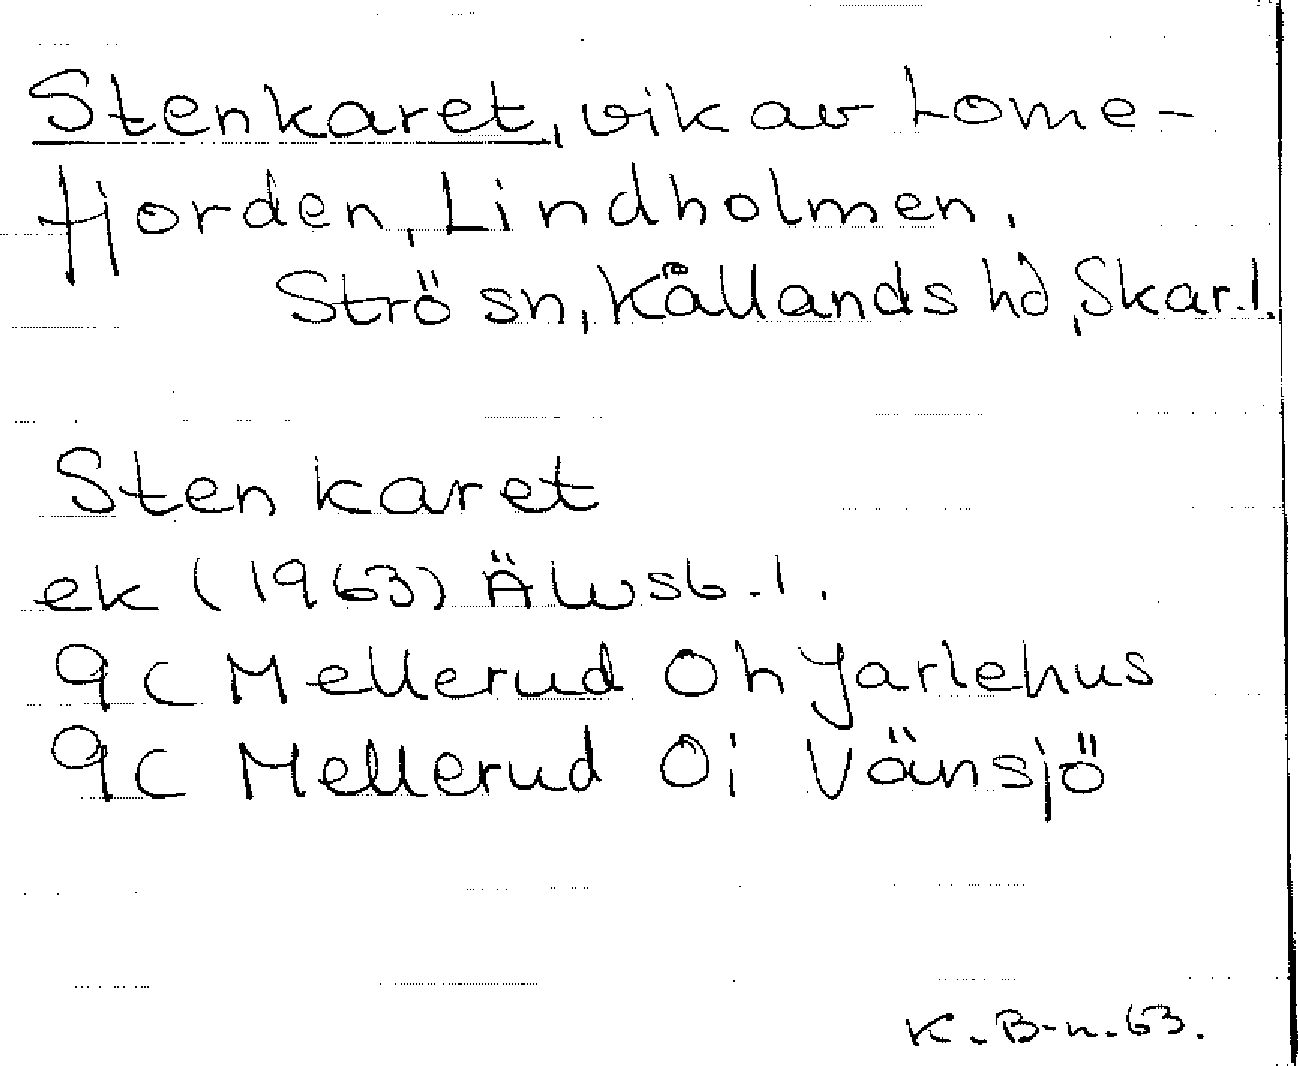 Stenkaret, vik av Lome-
fjorden, Lindholmen,
Strö sn, Kållands hd, Skar.l.
Stenkaret
ek (1963) Älvsb.l.
9C Mellerud 0h Jarlehus
9C Mellerud 0i Vänsjö
K.B-n.63.